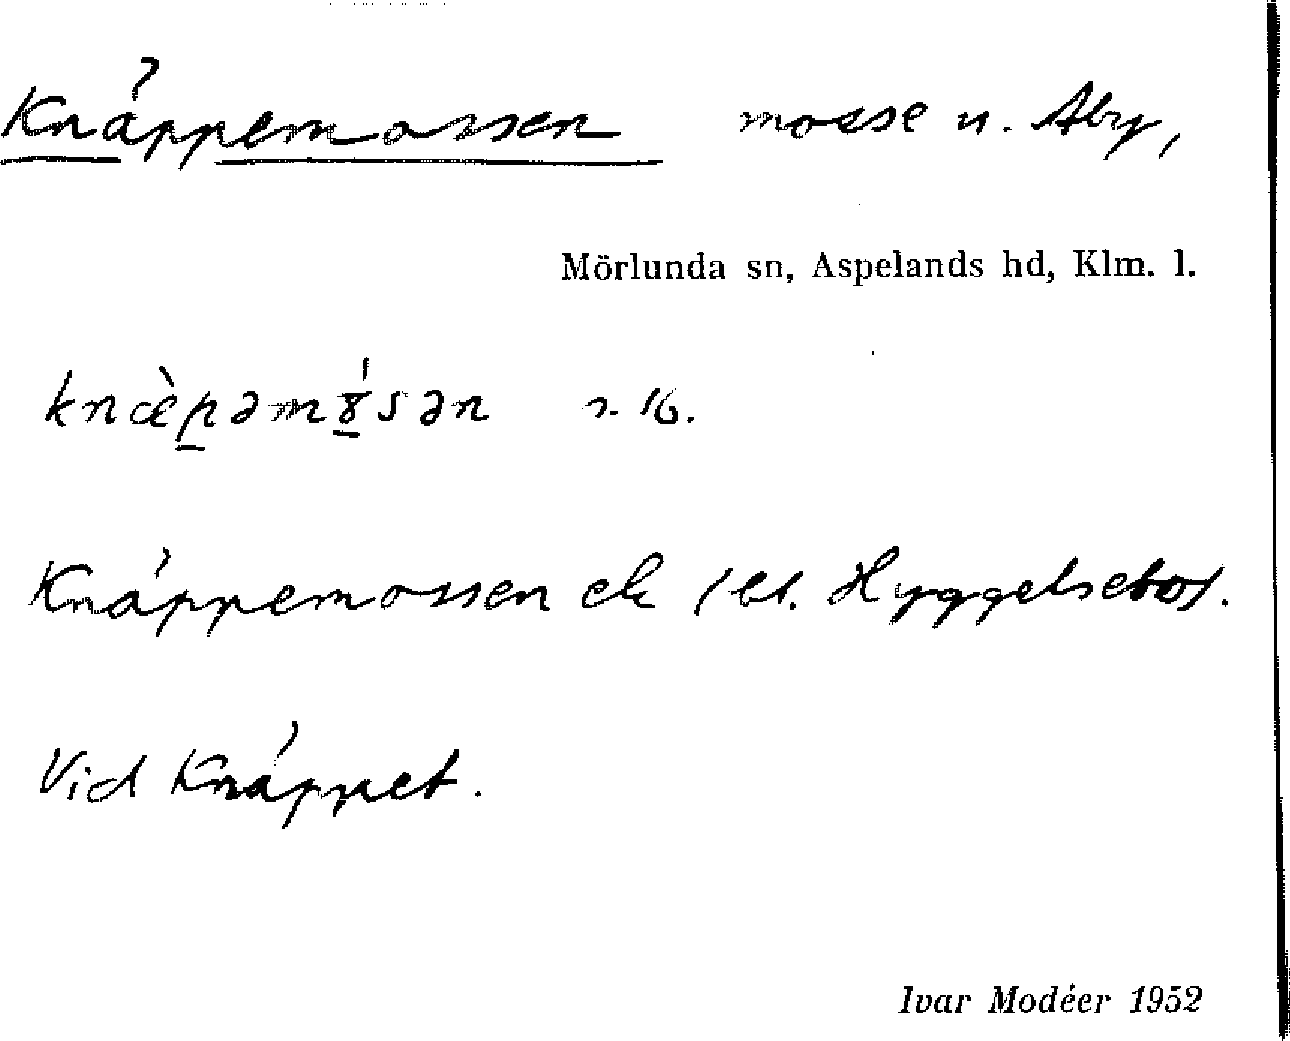 Knäppemossen mosse u. Åby,
Mörlunda sn, Aspelands hd, Klm. l.
knæ̀p̠əmɣ̠́sən n. 16.
Knäppemossen ek
Vid Knäppet.
Ivar Modéer 1952